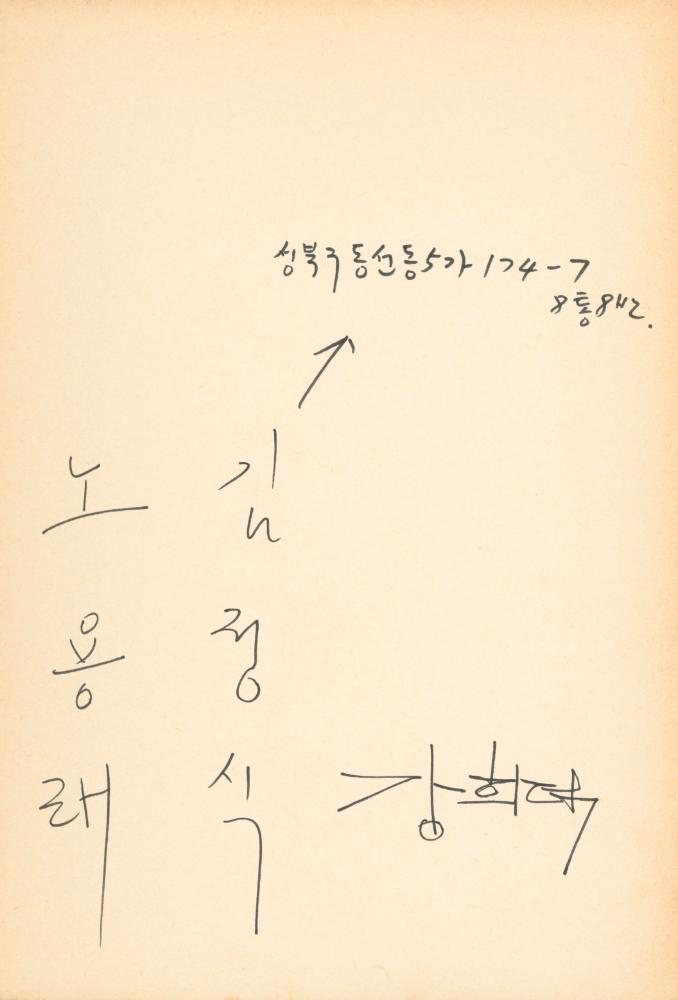 성북구 동선동5가 174-7
8통8반.
김정식
노용래
강희덕